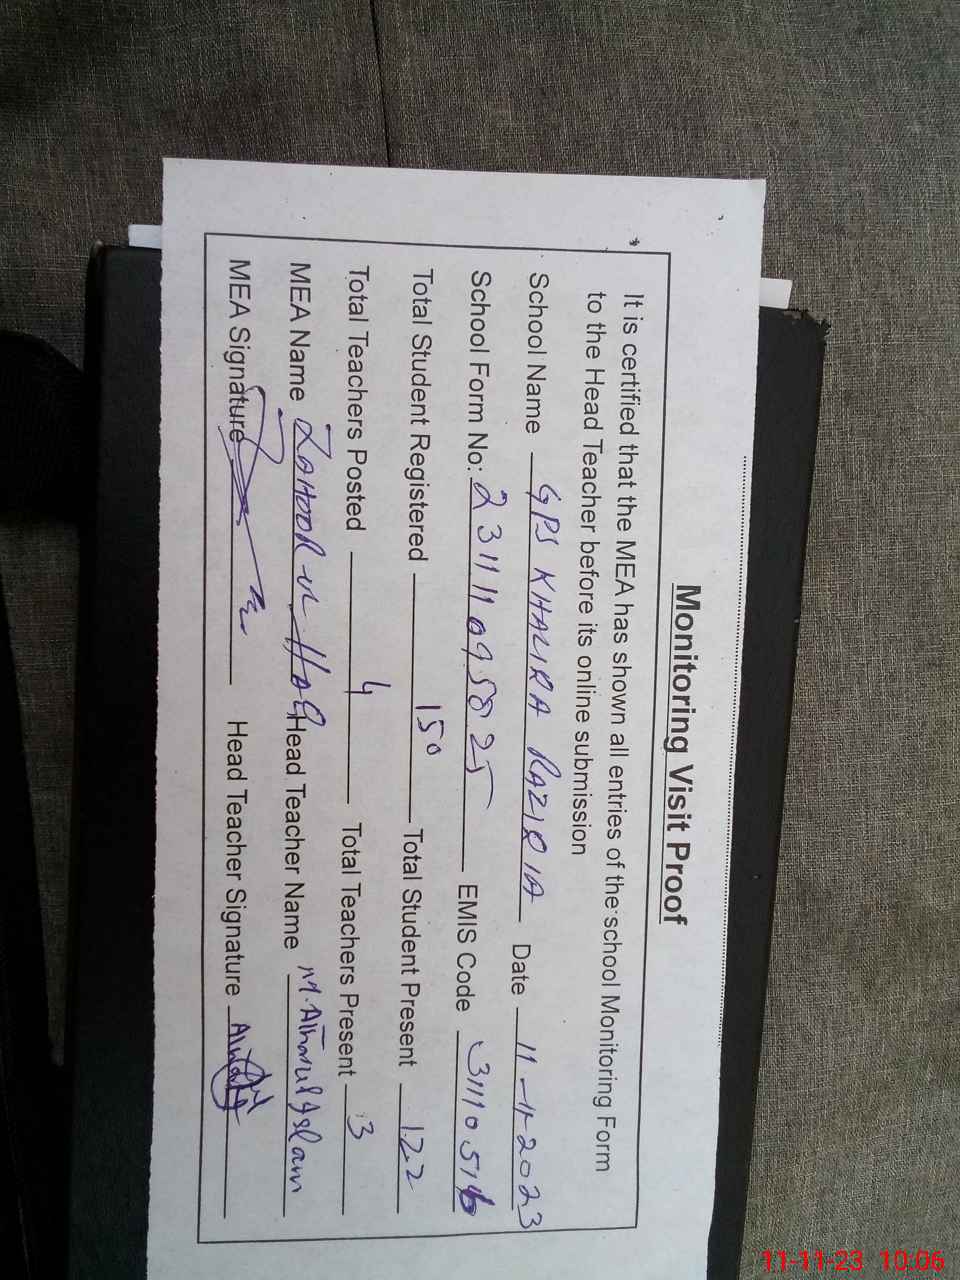 Monitoring Visit Proof
It is certified that the MEA has shown all entries of the school Monitoring Form
to the Head Teacher before its online submission
School Name GPS KHALIRA RAZIRIA Date 11-11-2023
School Form No: 23111095825 EMIS Code
Total Student Registered 150 Total Student Present 122
Total Teachers Posted 4 Total Teachers Present 3
MEA Name ZAHOOR UL HAQ Head Teacher Name M. Atharul Islam
MEA Signature Head Teacher Signature
11-11-23 10:06